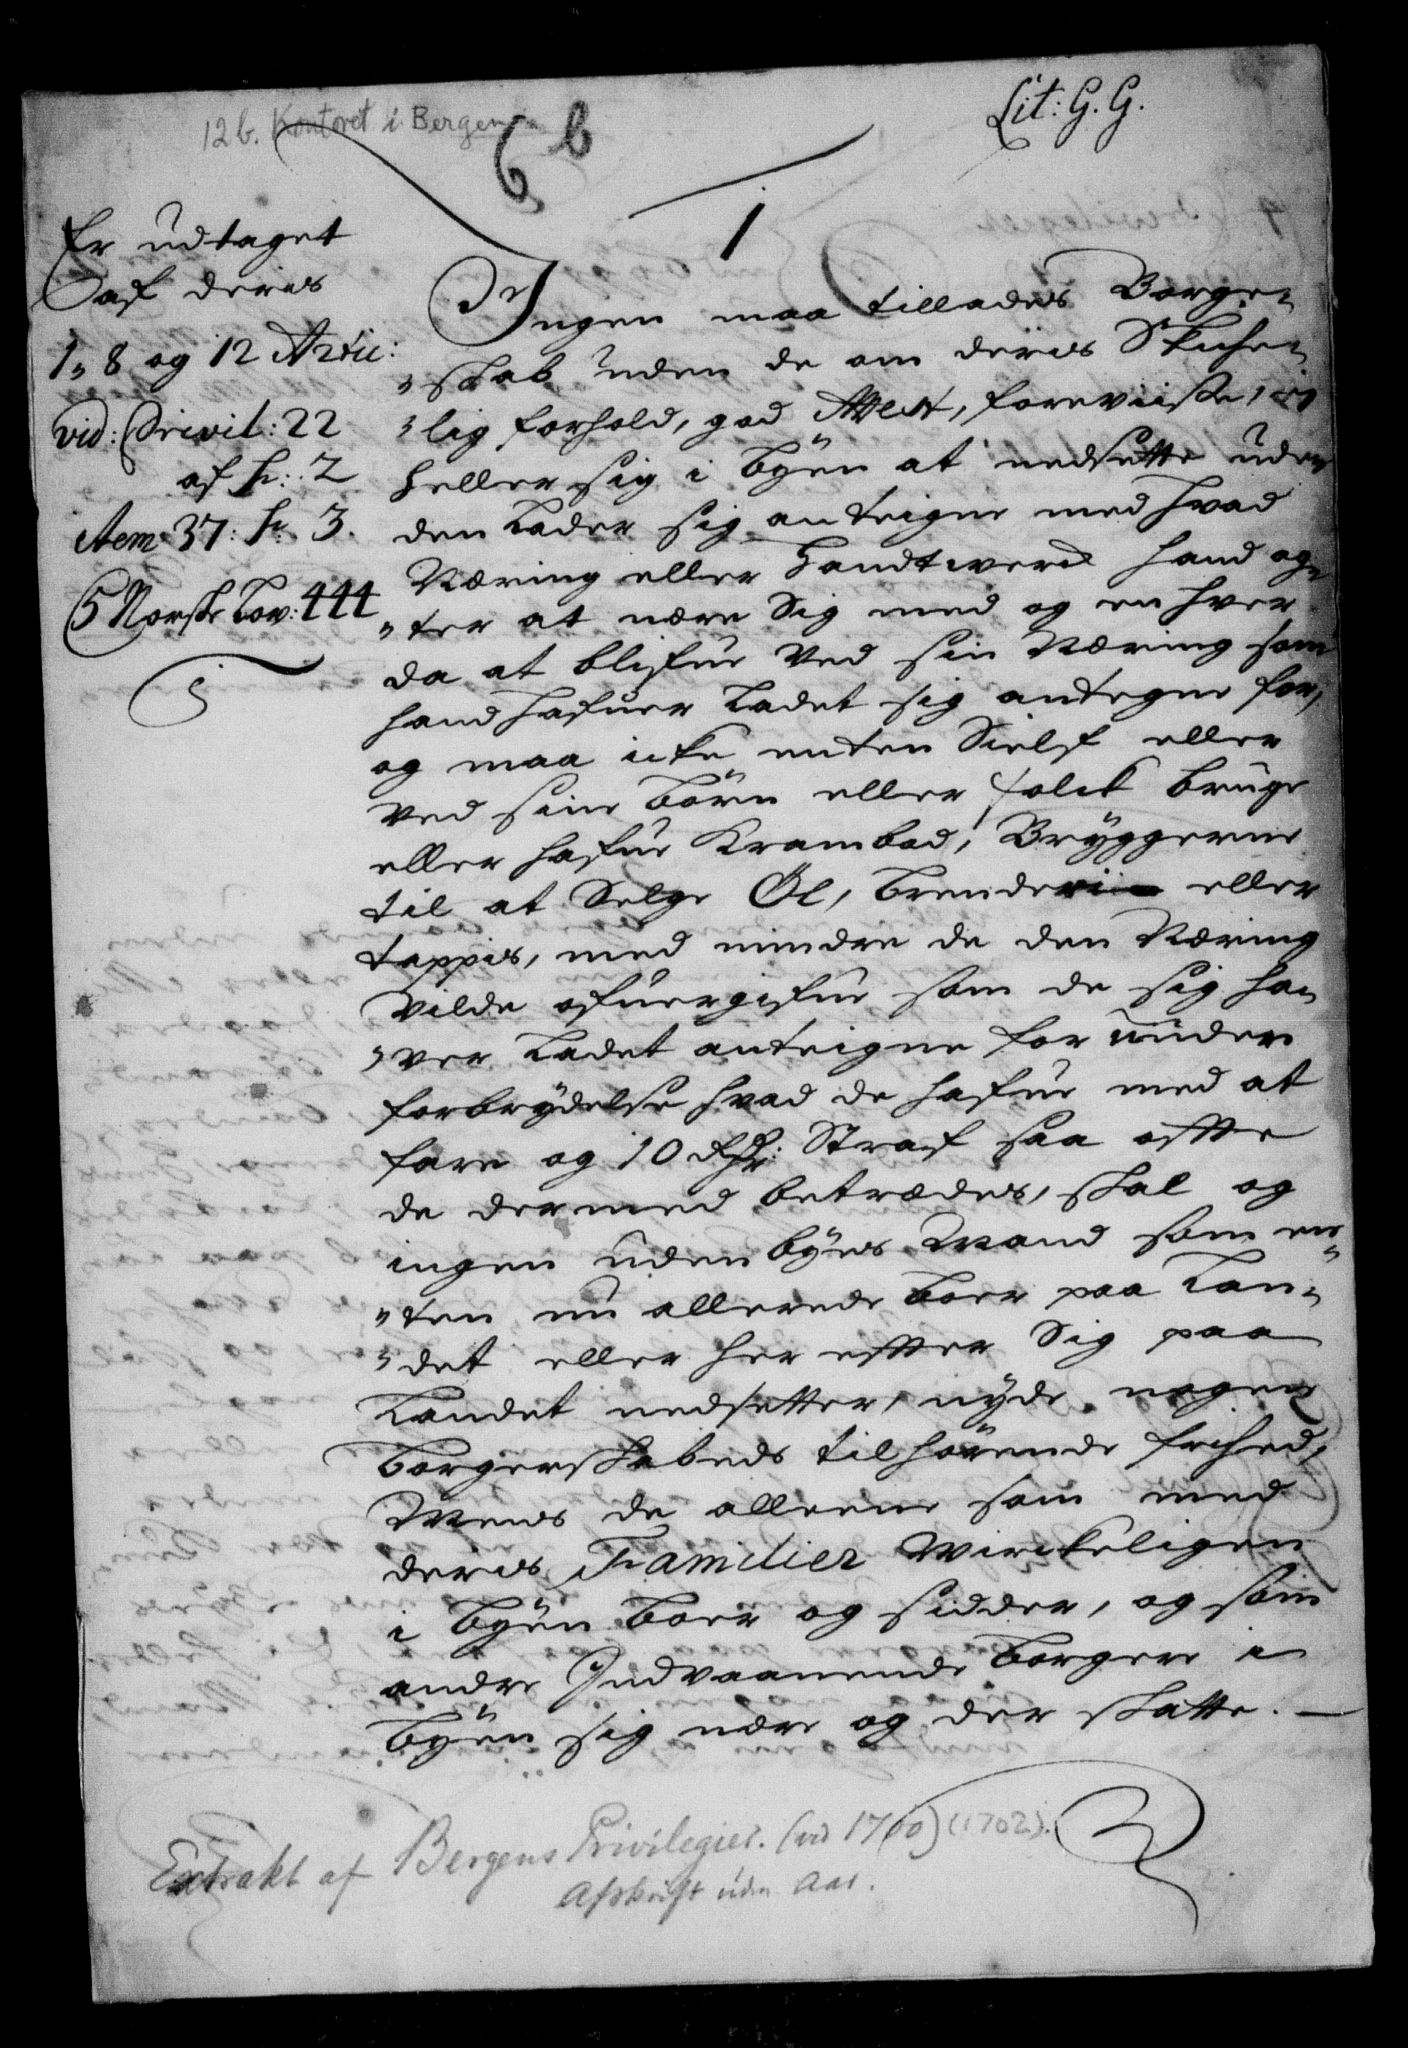 12 b. Kontoret i Bergen
6 b
Lit: G. G.
1
Er udtaget
af deris
1, 8 og 12 Artic:
vid: Privil: 22
af P: 2
Item 37: P: 3.
Norske Lov: 444
Ingen maa tillades Borger-
skab uden de om deris Skicke-
lig forhold, god Attest, foreviise, ey
heller sig i Byen at nedsætte uden
den Lader sig anteigne med hvad
Næring eller Handtwerck hand ag-
ter at nære Sig med og en hver
da at blifue Ved sin Næring som
hand hafuer Ladet sig antegne for,
og maa icke enten Sielf eller
Ved sine Börn eller folck bruge
eller hafue Krambod, Bryggerne
til at Selge Öl, Brenderi eller
tappis, med mindre de den Næring
Vilde ofuergifue som de sig ha-
ver Ladet anteigne for under
forbrydelse hvad de hafue med at
fare og 10 Rdr: Straf saa offte
de dermed betrædes, skal og
ingen uden byes Mand som en-
ten nu allerede boer paa Lan-
det eller her effter Sig paa
Landet nedsetter, nyde nogen
Borgerskabeds tilhörende frihed,
Mens de alleene som med
deris Familier Wirckeligen
i Byen boer og sidder, og som
andre Indvaanende Borgere i
Byen sig nære og der skatte. —
Extrakt af Bergens Privilegier. (vid 1700) (1702).
Afskrift uden Aar.